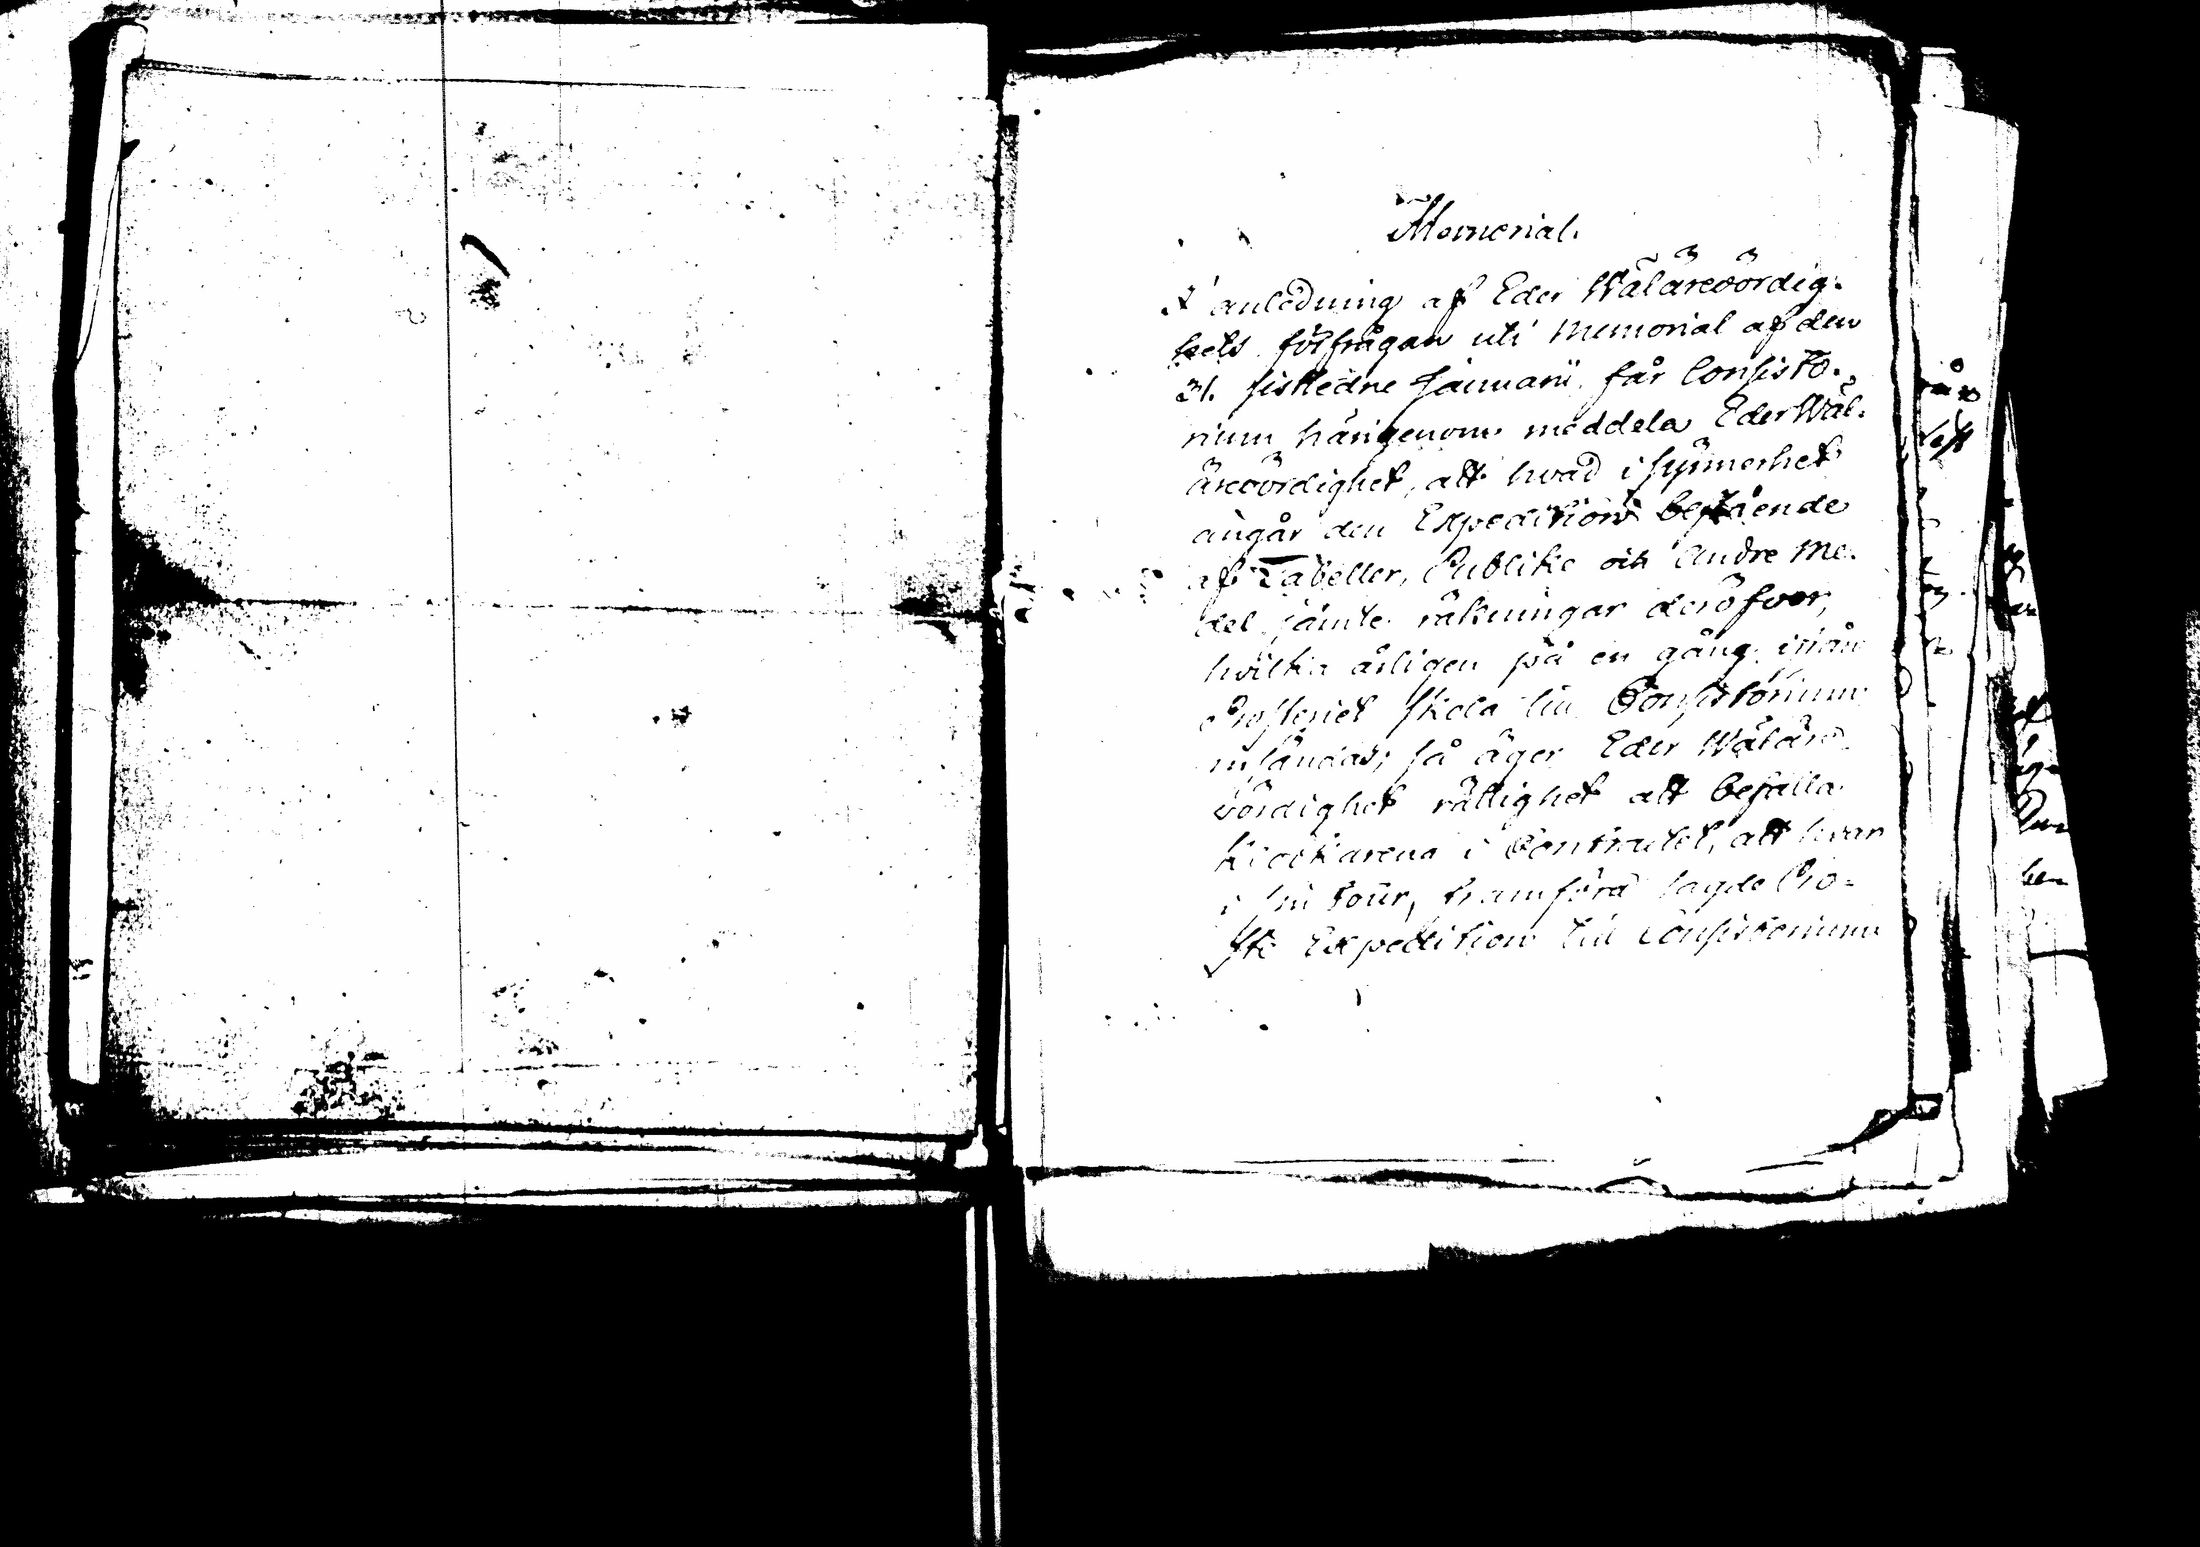 Memorial.
I anledning af Eder Wälärewördig-
hets förfrågan uti Memorial af den
31. sistledne Januarii, får Consisto-
rium härigenom meddela Eder Wäl-
ärewördighet, att hvad i synnerhet
angår den Expedition bestående
af Tabeller, Publike och andre Me-
del jämte räkningar deröfver,
hvilka årligen på en gång ifrån
Prosteriet skola till Consistorium
insändas; så äger Eder Wäläre
wördighet rättighet att befalla
Klockarena i Contractet, att hvar
i sin tour, framföra sagde Pro-
sti Expedition till Consistorium